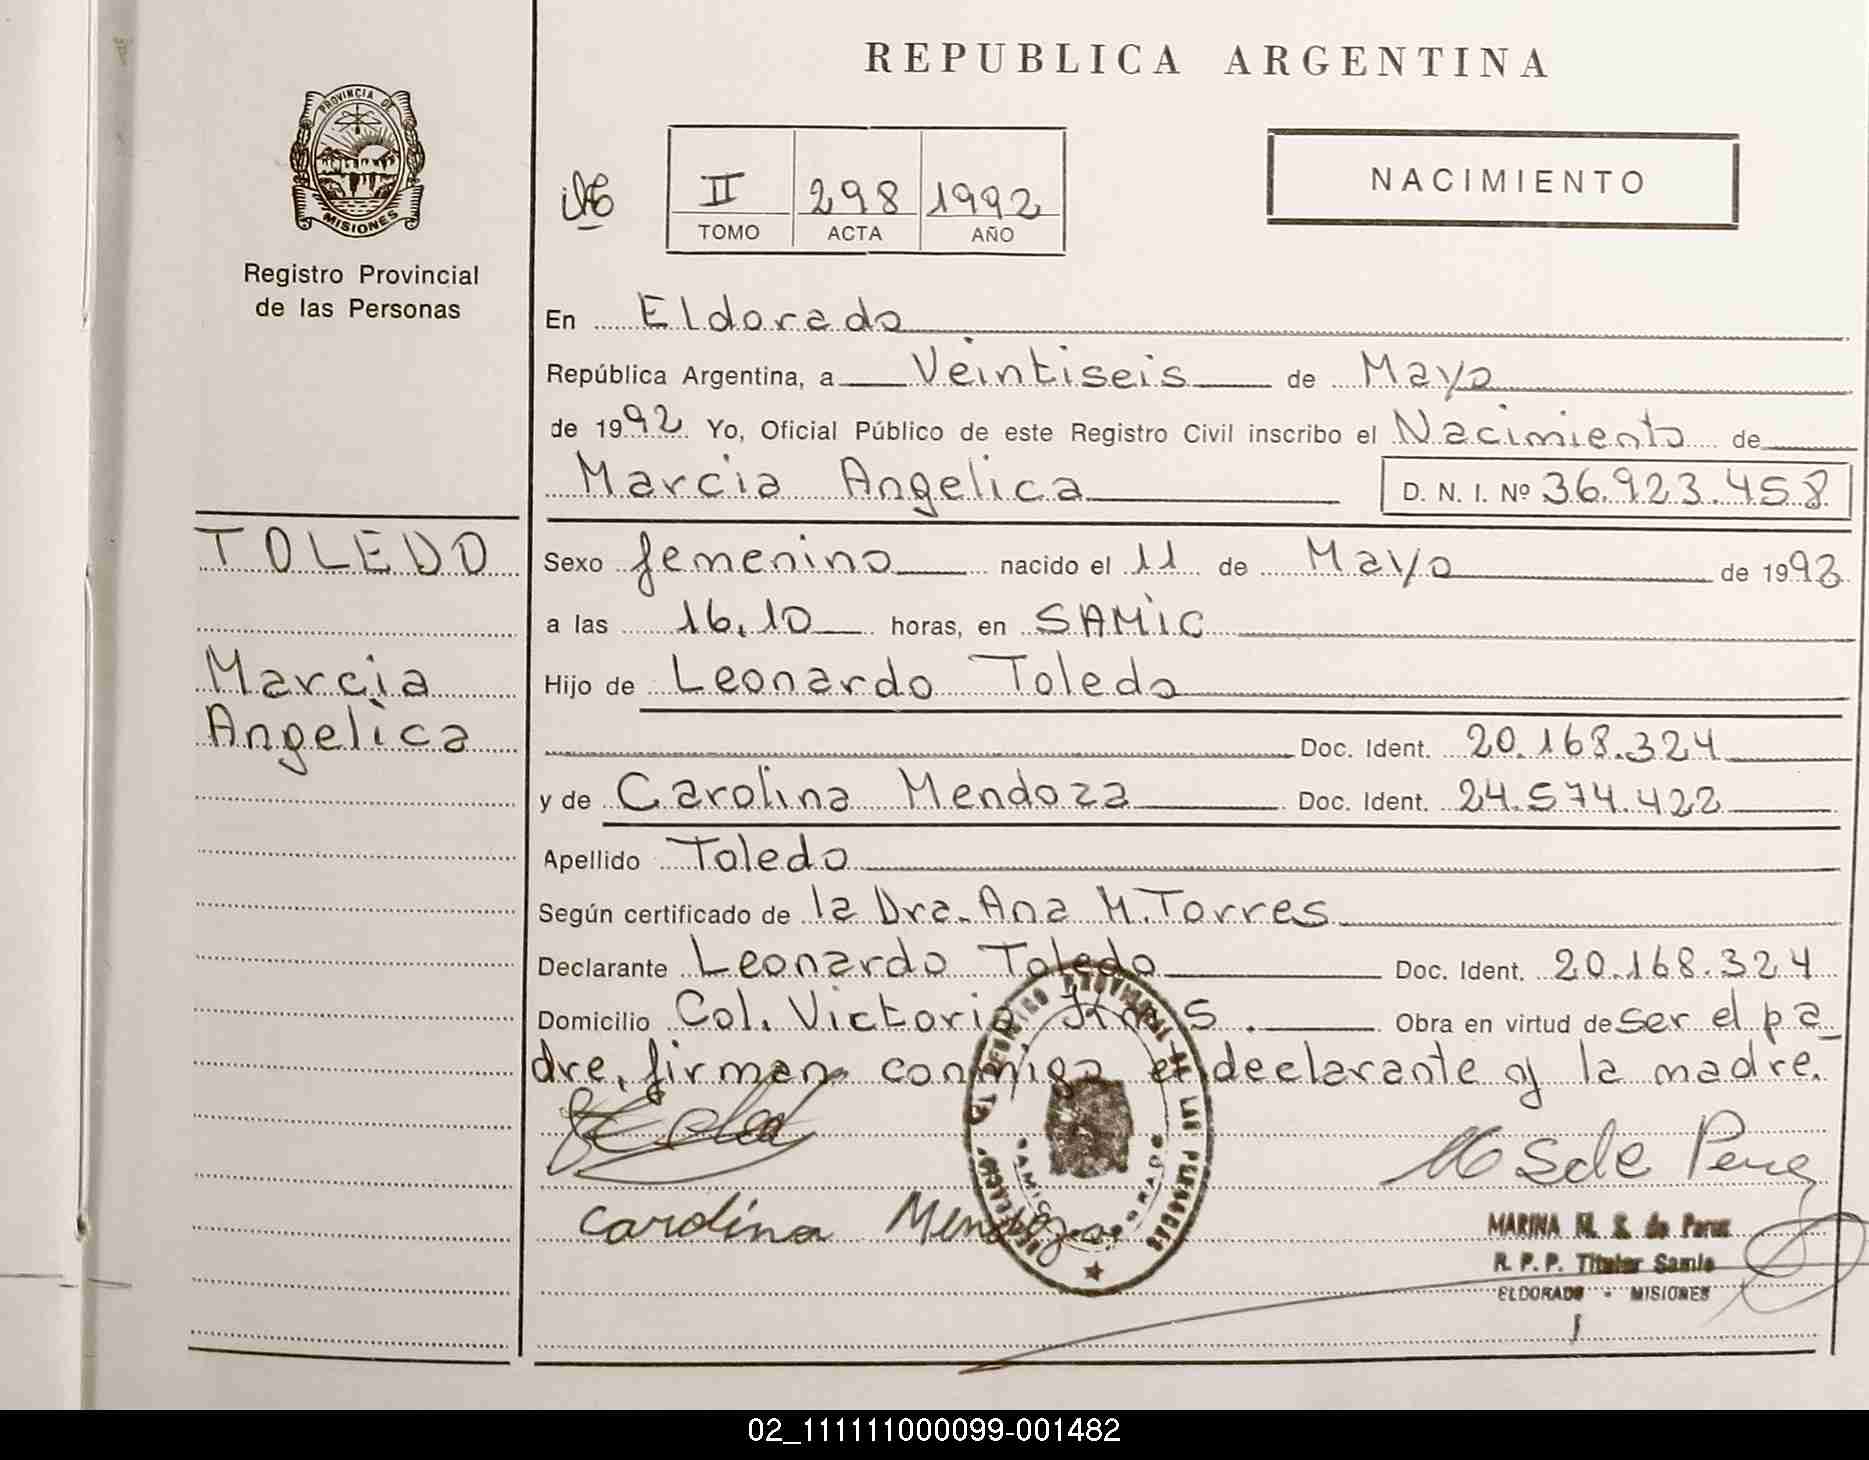 REPUBLICA ARGENTINA
PROVINCIA DE
MISIONES
Registro Provincial
de las Personas
II 298 1992
TOMO ACTA AÑO
NACIMIENTO
En Eldorado
República Argentina, a Veintiseis de Mayo
de 1992 Yo, Oficial Público de este Registro Civil inscribo el Nacimiento de
Marcia Angelica D. N. I. Nº 36.923.458
TOLEDO
Marcia
Angelica
Sexo femenino nacido el 11 de Mayo de 1992
a las 16,10 horas, en SAMIC
Hijo de Leonardo Toledo
Doc. Ident. 20.168.324
y de Carolina Mendoza Doc. Ident. 24.574.422
Apellido Toledo
Según certificado de la Dra. Ana M. Torres
Declarante Leonardo Toledo Doc. Ident. 20.168.324
Domicilio Col. Victoria, Kms. Obra en virtud de ser el pa_
dre, firman conmigo el declarante y la madre.
Carolina Mendoza
MARINA M. S. de Perez
R. P. P. Titular Samic
ELDORADO - MISIONES
02_111111000099-001482